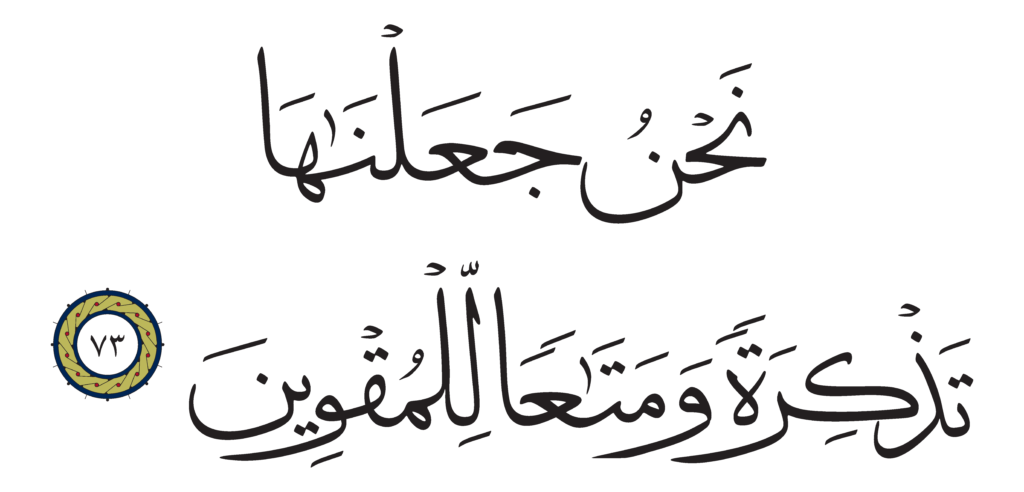 نَحْنُ جَعَلْنَٰهَا
تَذْكِرَةً وَمَتَٰعًا لِّلْمُقْوِينَ ٧٣